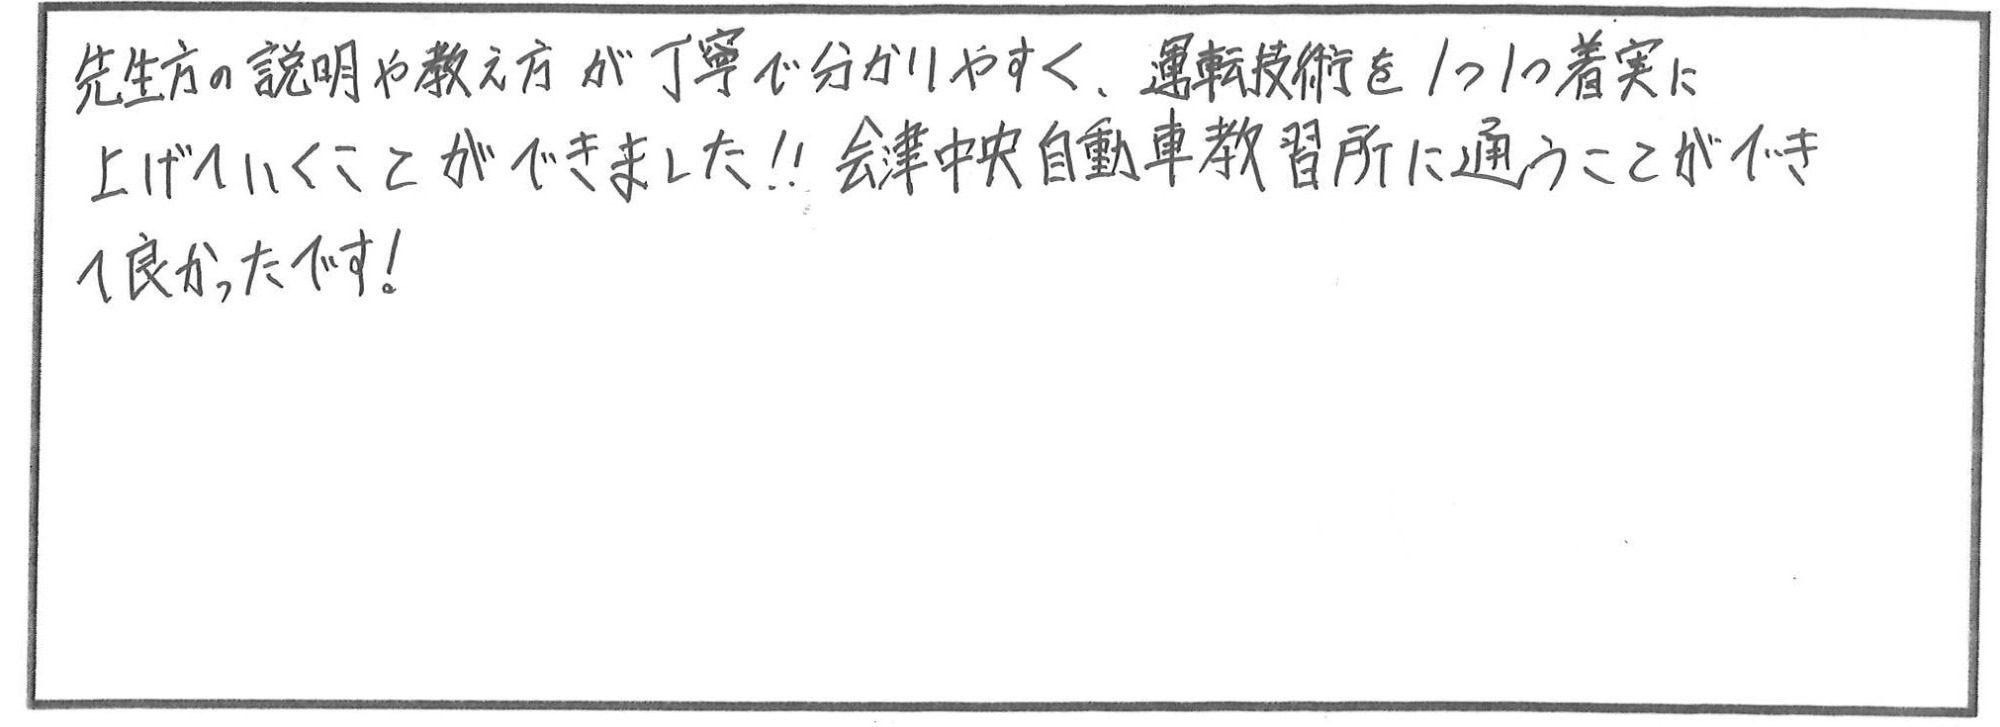 先生方の説明や教え方が丁寧で分かりやすく、運転技術を1つ1つ着実に
上げていくことができました!! 会津中央自動車教習所に通うことができ
て良かったです!